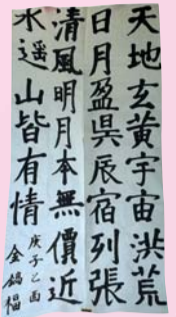 天地玄黃宇宙洪荒
日月盈昃辰宿列張
清風明月本無價近
水遥山皆有情
庚子乙酉
金鎬楹